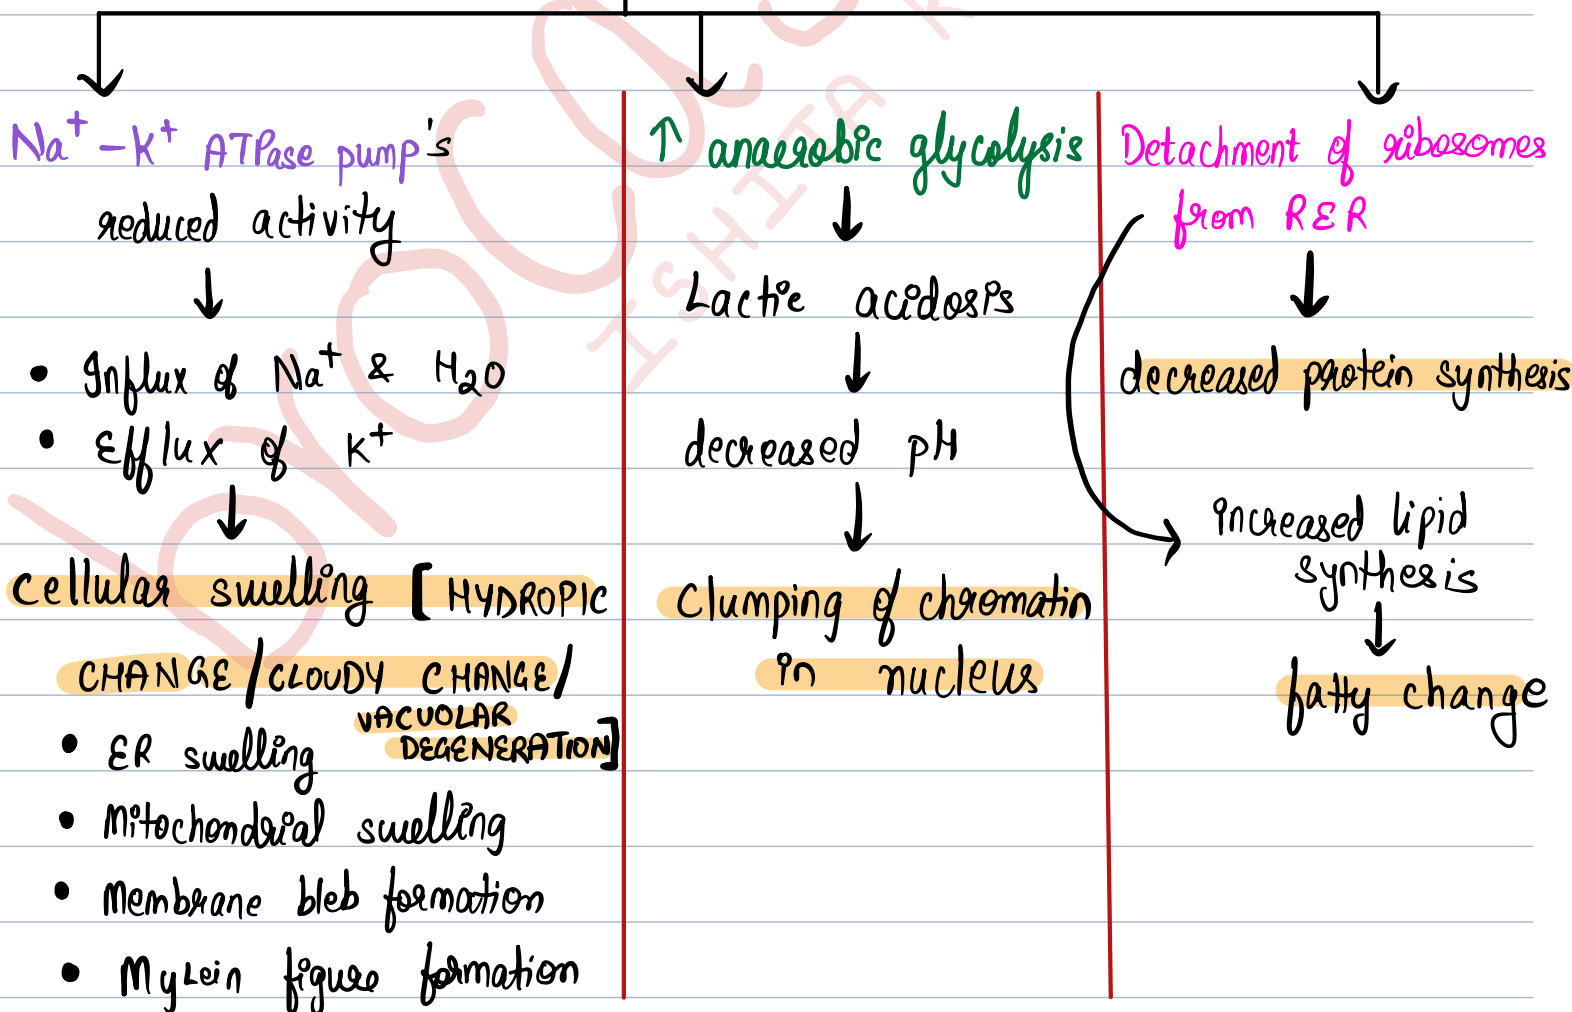 Na⁺ – K⁺ ATPase pump's
reduced activity
• Influx of Na⁺ & H₂O
• Efflux of K⁺
Cellular swelling [HYDROPIC
CHANGE / CLOUDY CHANGE /
VACUOLAR
DEGENERATION]
• ER swelling
• Mitochondrial swelling
• Membrane bleb formation
• Myelin figure formation
↑ anaerobic glycolysis
Lactic acidosis
decreased pH
Clumping of chromatin
in nucleus
Detachment of ribosomes
from RER
decreased protein synthesis
increased lipid
synthesis
fatty change
ISHITA